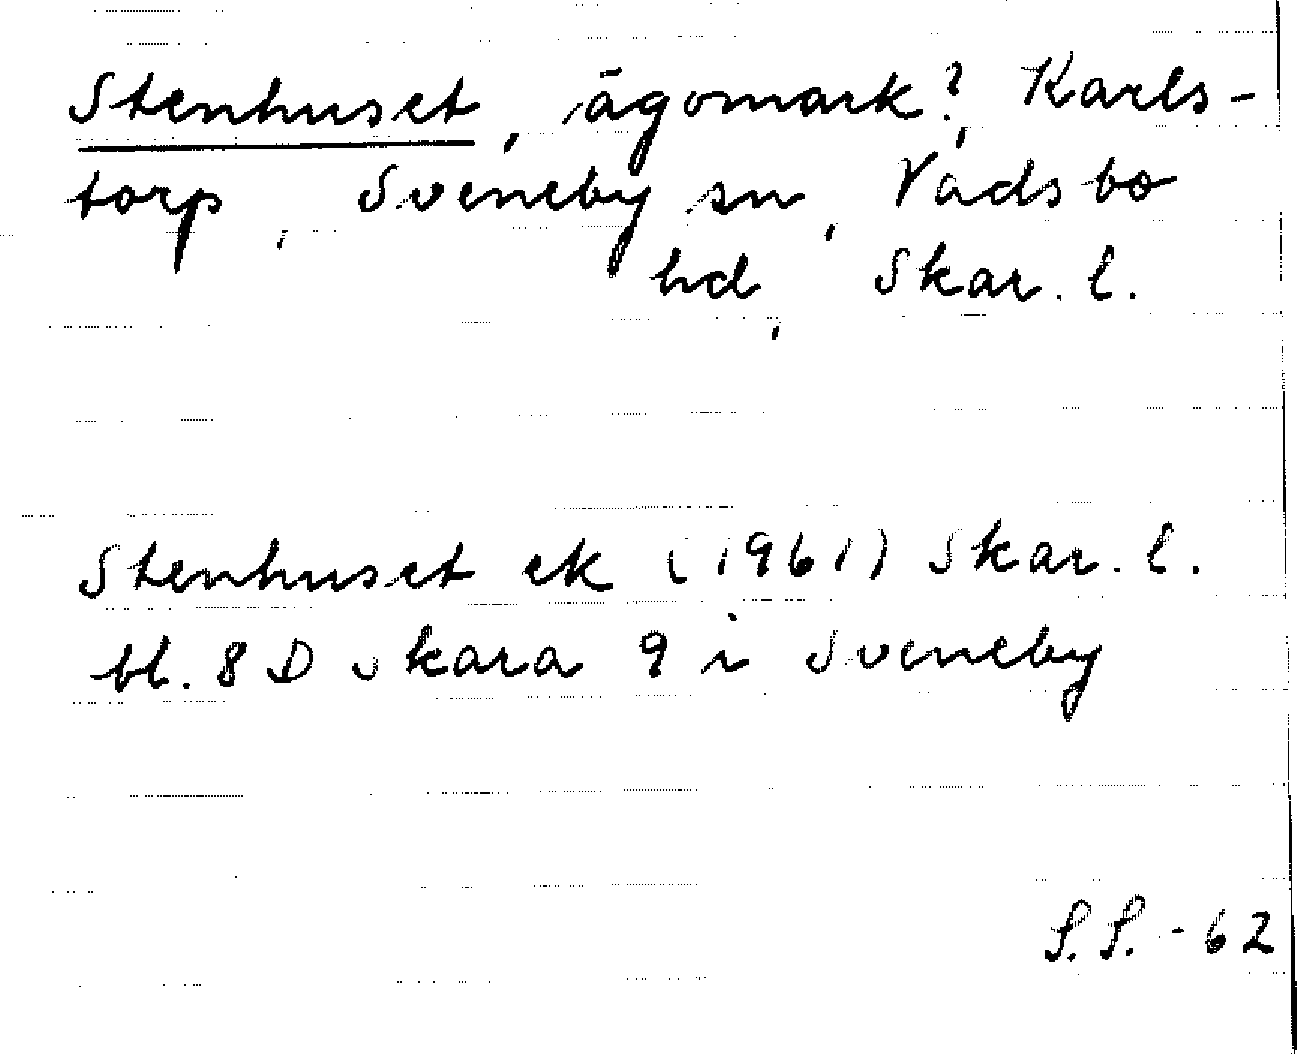 Stenhuset, ägomark?, Karls-
torp, Sveneby sn, Vadsbo
hd, Skar. l.
Stenhuset ek (1961) Skar. l.
bl. 8 D Skara 9 i Sveneby
S.S. -62